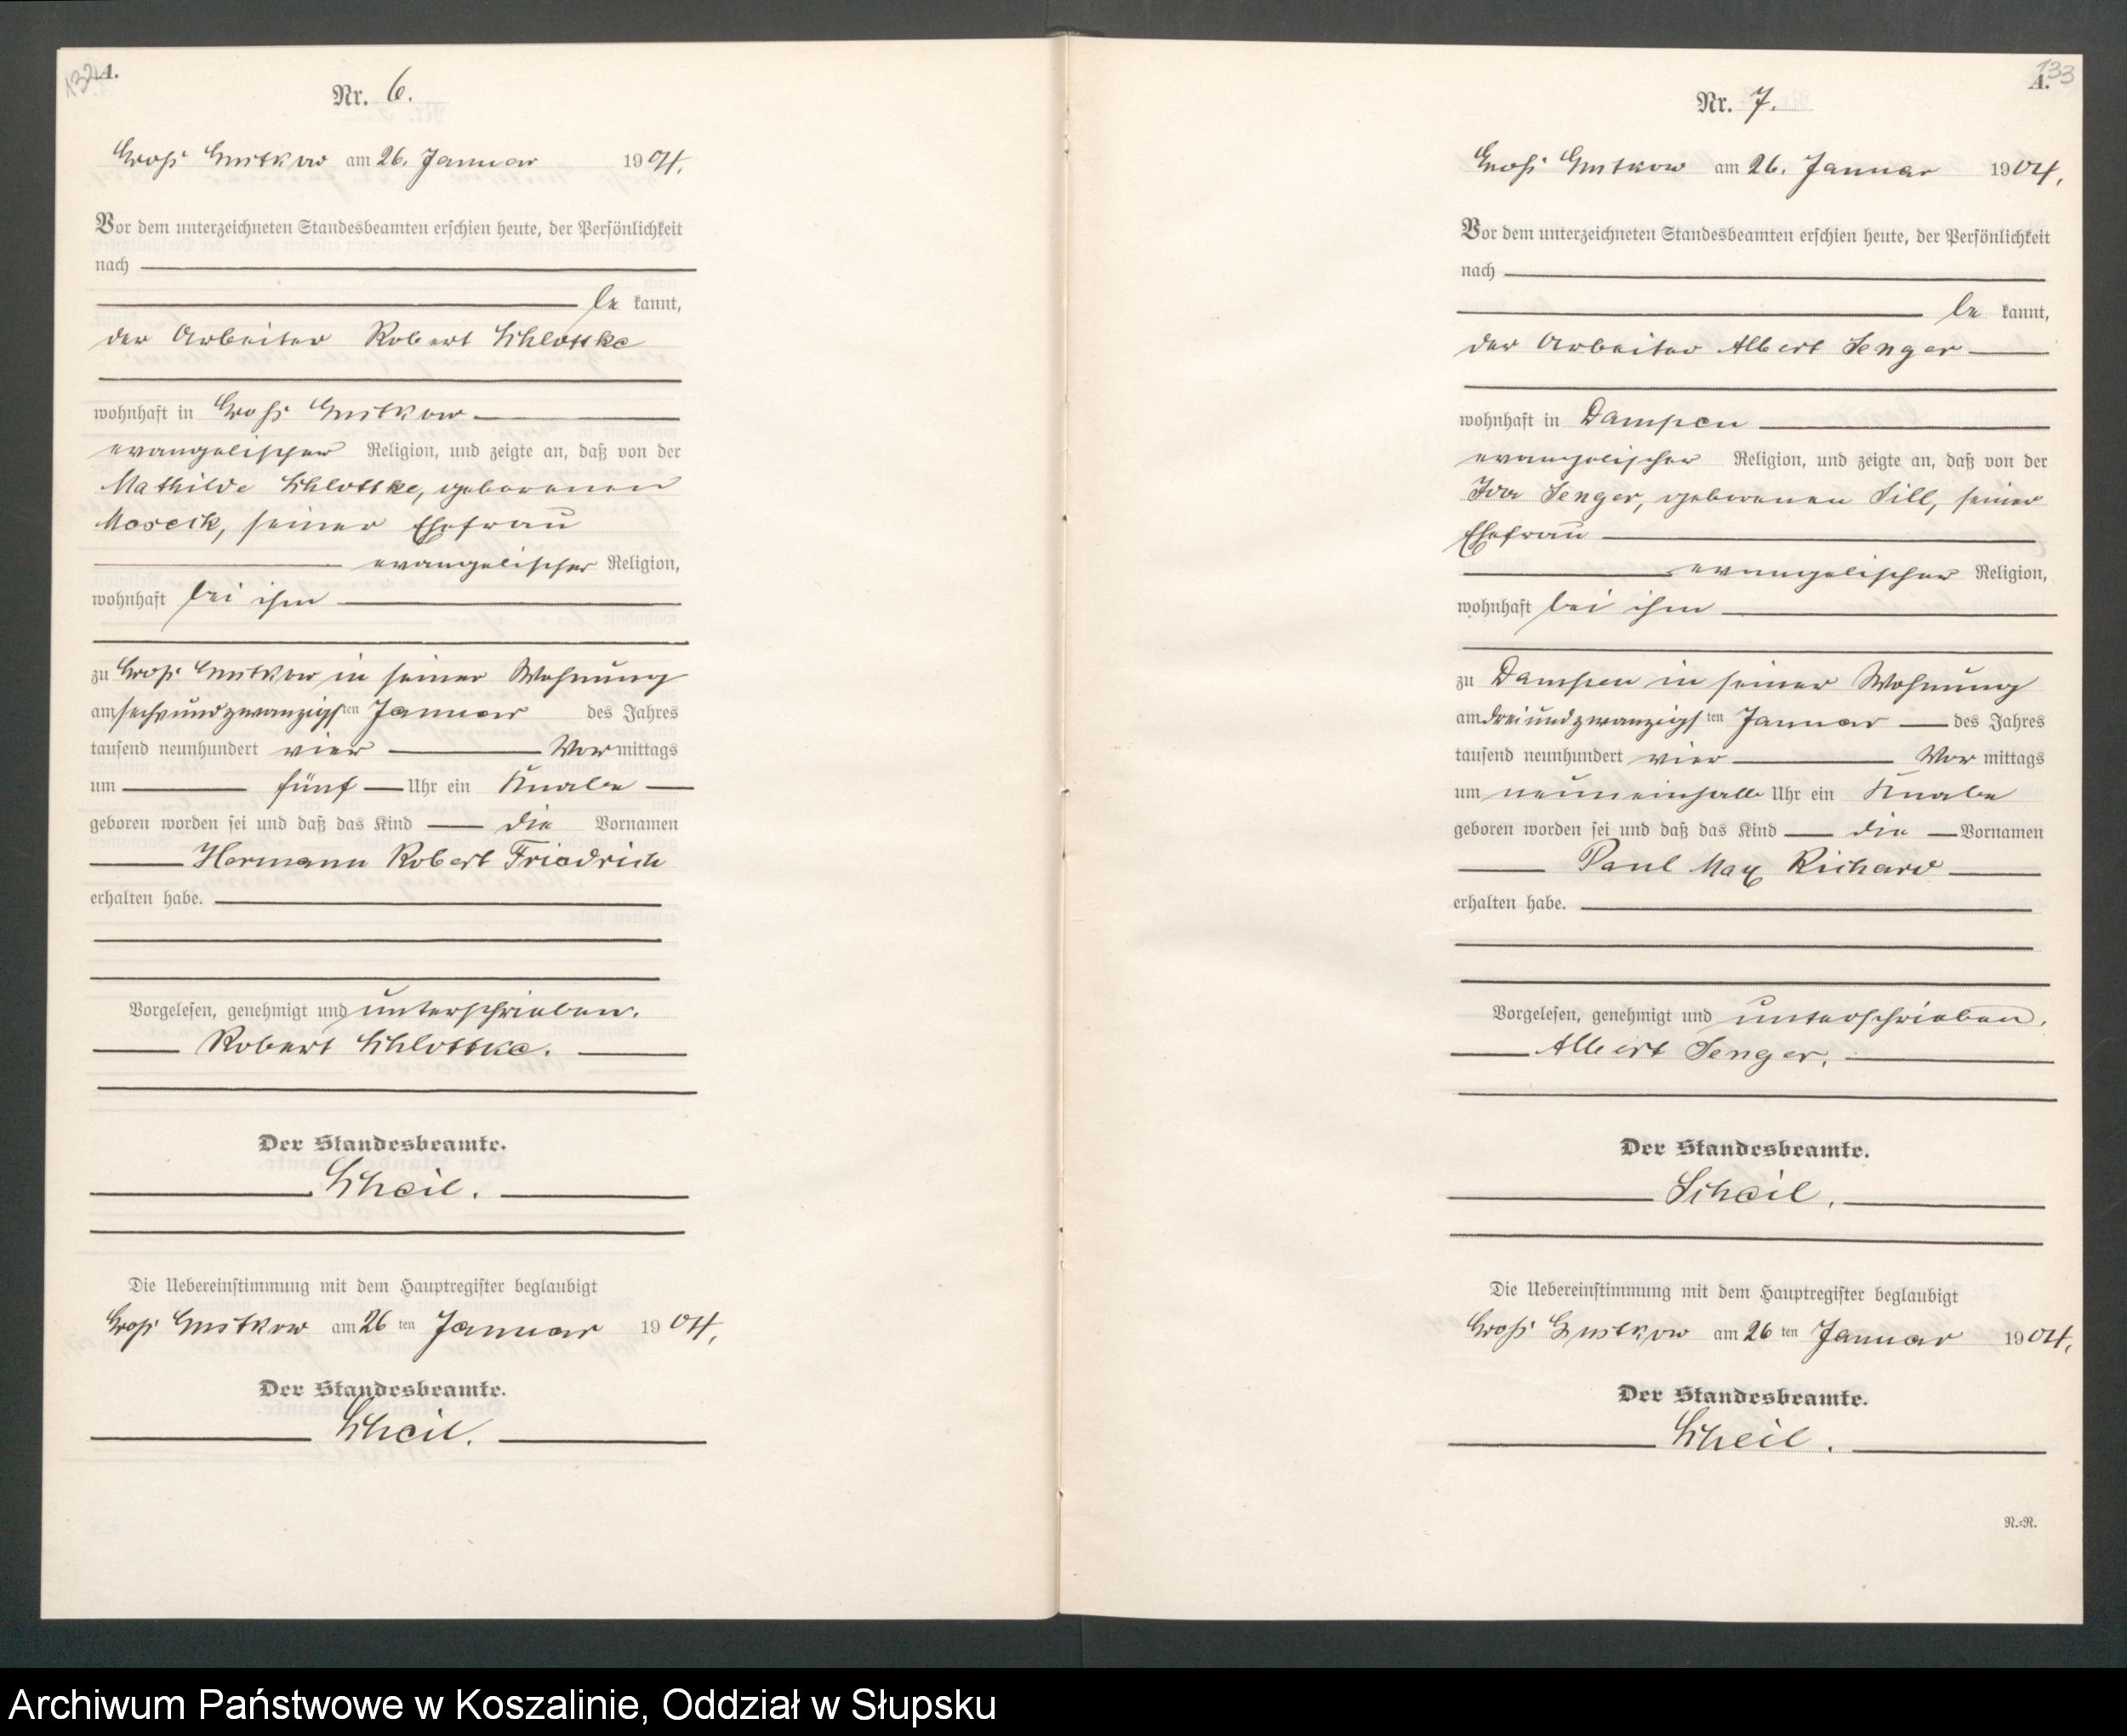 132
A.
Nr. 6.
Groß Gustkow am 26. Januar 1904.
Vor dem unterzeichneten Standesbeamten erschien heute, der Persönlichkeit
nach
be kannt,
der Arbeiter Robert Schlottke
wohnhaft in Groß Gustkow
evangelischer Religion, und zeigte an, daß von der
Mathilde Schlottke, geborenen
Moseik, seiner Ehefrau
evangelischer Religion,
wohnhaft bei ihm
zu Groß Gustkow in seiner Wohnung
am sechsundzwanzigsten Januar des Jahres
tausend neunhundert vier Vormittags
um fünf Uhr ein Knabe
geboren worden sei und daß das Kind die Vornamen
Hermann Robert Friedrich
erhalten habe.
Vorgelesen, genehmigt und unterschrieben.
Robert Schlottke.
Der Standesbeamte.
Scheil.
Die Uebereinstimmung mit dem Hauptregister beglaubigt
Groß Gustkow am 26 ten Januar 1904.
Der Standesbeamte.
Scheil.
133
A.
Nr. 7.
Groß Gustkow am 26. Januar 1904.
Vor dem unterzeichneten Standesbeamten erschien heute, der Persönlichkeit
nach
be kannt,
der Arbeiter Albert Senger
wohnhaft in Dampen
evangelischer Religion, und zeigte an, daß von der
Ida Senger, geborenen Sill, seiner
Ehefrau
evangelischer Religion,
wohnhaft bei ihm
zu Dampen in seiner Wohnung
am dreiundzwanzigsten Januar des Jahres
tausend neunhundert vier Vormittags
um neuneinhalb Uhr ein Knabe
geboren worden sei und daß das Kind die Vornamen
Paul Max Richard
erhalten habe.
Vorgelesen, genehmigt und unterschrieben.
Albert Senger.
Der Standesbeamte.
Scheil.
Die Uebereinstimmung mit dem Hauptregister beglaubigt
Groß Gustkow am 26 ten Januar 1904.
Der Standesbeamte.
Scheil.
N.-R.
Archiwum Państwowe w Koszalinie, Oddział w Słupsku